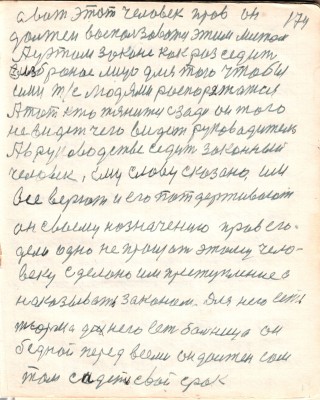 а вот этот человек прав он
174
должен воспользоваться этим методом
А у этом законе как раз седит
изброное лицо для того чтобы
сими т/с людями роспоряжатся
А тот кто тянится сзади он того
не видет чего видет руководитель
А в руководстве седит законный
человек, ему слово сказано, им
все верют и его подтдерживают
он своему нозначению прав его
дело одно не прощат этому чело-
веку сделоно им приступление а
наказывать законом. Для него есть
тюрма для него есть болница он
бедной перед всеми он должен сам
там садеть свой срок